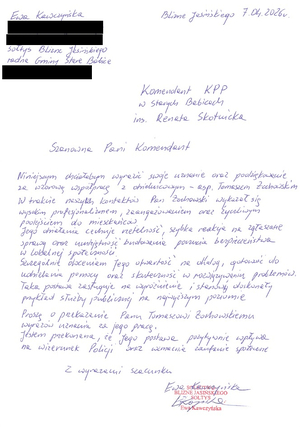 Ewa Kawczyńska
Blizne Jasińskiego 7.04.2026r.
sołtys Blizne Jasińskiego
radna Gminy Stare Babice
Komendant KPP
w Starych Babicach
insp. Renata Skotnicka
Szanowna Pani Komendant
Niniejszym chciałabym wyrazić swoje uznanie oraz podziękowanie
za wzorową współpracę z dzielnicowym - asp. Tomaszem Żochowskim
W trakcie naszych kontaktów Pan Żochowski wykazał się
wysokim profesjonalizmem, zaangażowaniem oraz życzliwym
podejściem do mieszkańców
Jego działania cechuje rzetelność, szybka reakcja na zgłaszane
sprawy oraz umiejętność budowania poczucia bezpieczeństwa
w lokalnej społeczności
Szczególnie doceniam Jego otwartość na dialog, gotowość do
udzielania pomocy oraz skuteczność w rozwiązywaniu problemów.
Taka postawa zasługuje na wyróżnienie i stanowi doskonały
przykład służby publicznej na najwyższym poziomie
Proszę o przekazanie Panu Tomaszowi Żochowskiemu
wyrazów uznania za jego pracę.
Jestem przekonana, że Jego postawa pozytywnie wpływa
na wizerunek Policji oraz wzmacnia zaufanie społeczne
Z wyrazami szacunku
Ewa Kawczyńska
BLIZNE JASIŃSKIEGO
SOŁTYS
Ewa Kawczyńska